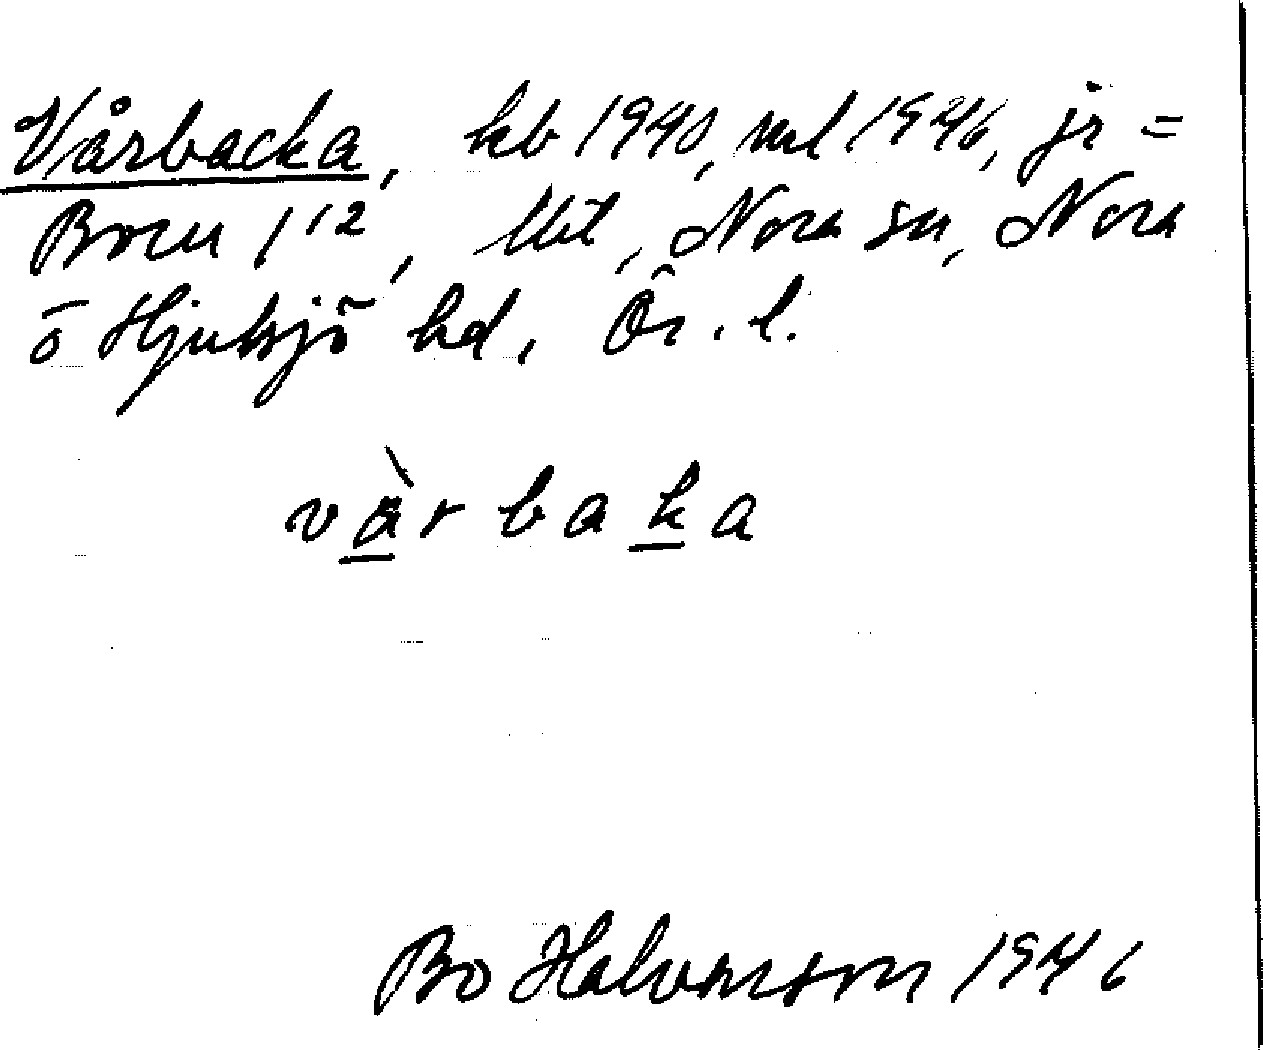 Vårbacka, kb 1940, ml 1946, jr =
Born 1 12, Utt, Nora sn, Nora
o Hjulsjö hd, Ör. l.
vàrbaka
Bo Halvarson 1946